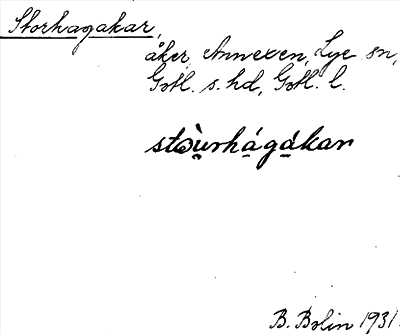 Storhagakar,
åker, Annexen, Lye sn,
Gotl. s. hd, Gotl. l.
stoùrhágákar
B. Bolin 1931.